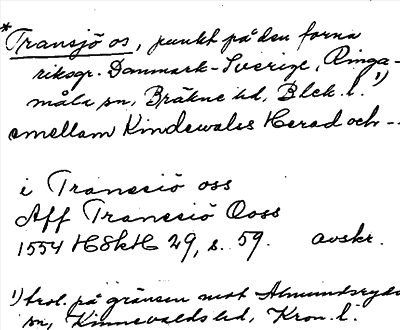 *Transjö os, punkt på den forna
riksgr. Danmark-Sverige, Ringa-
måla sn, Bräkne hd, Blek. l. 1)
emellam Kindewales Herad och --
i Transsiö oss
Aff Transsiö Ooss
1554 HSkH 29, s. 59. avskr.
1) trol. på gränsen mot Almundsryds
sn, Kinnevalds hd, Kron. l.